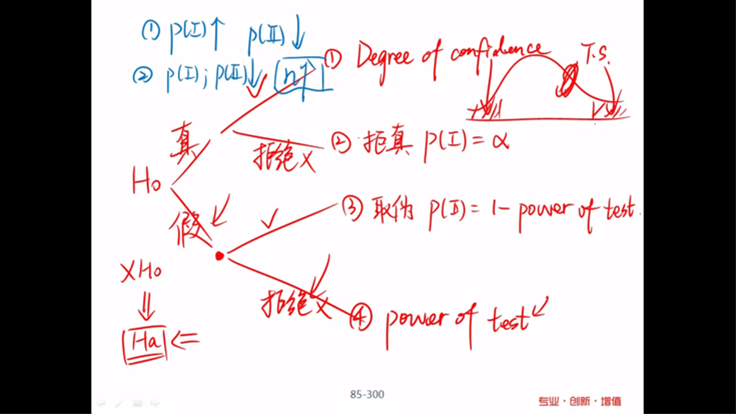 ① P(I)↑ P(II)↓
② P(I);P(II)↓ n↑
① Degree of confidence
T.S.
真
拒绝x
② 拒真 P(I)=α
Ho
假
③ 取伪 P(II)=1-power of test
XHo
拒绝x
④ power of test
Ha
85-300
专业·创新·增值